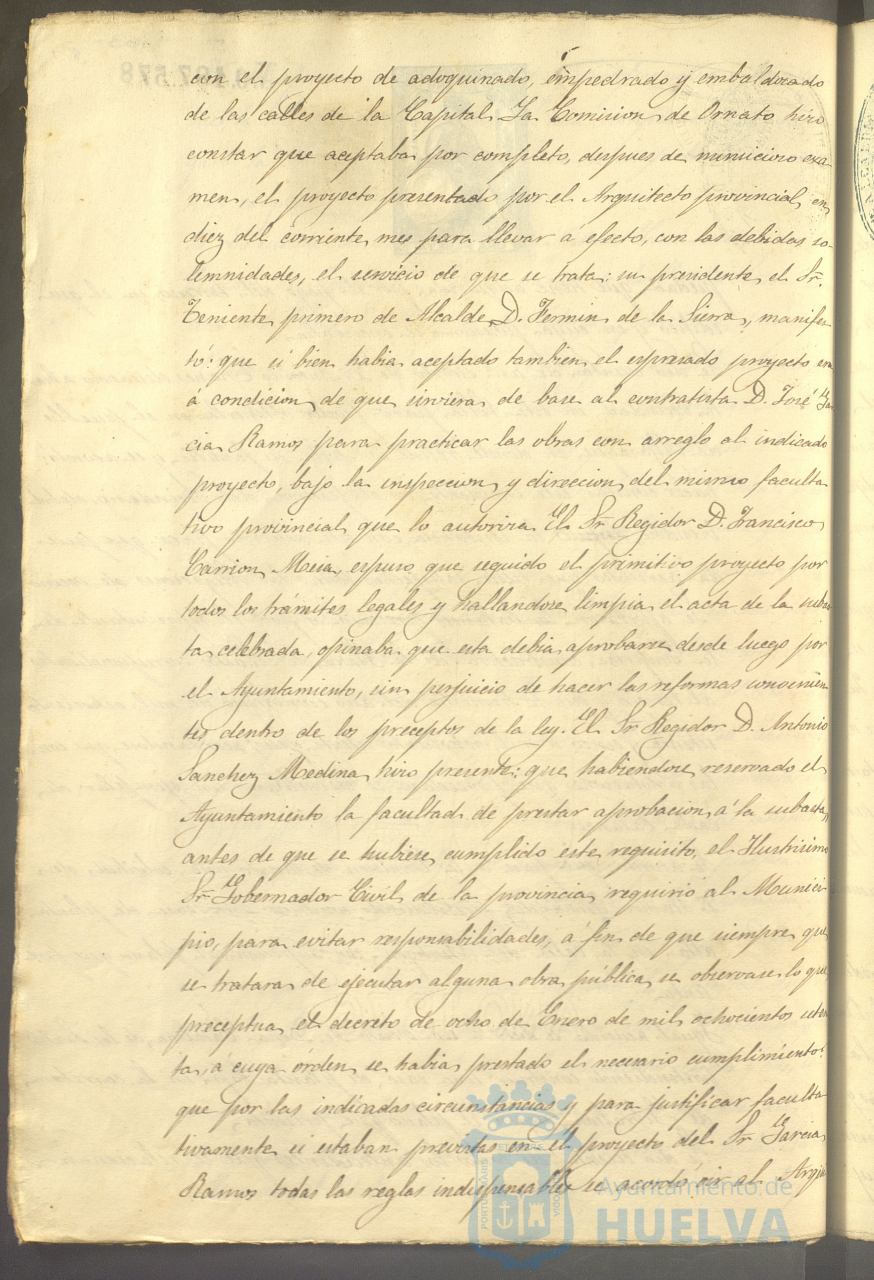 con el proyecto de adoquinado, empedrado y embaldosado
de las calles de la Capital. La Comision de Ornato hizo
constar que aceptaba por completo, despues de minucioso exa-
men, el proyecto presentado por el Arquitecto provincial en
diez del corriente mes para llevar á efecto, con las debidas so-
lemnidades, el servicio de que se trata: su presidente el Sr.
Teniente primero de Alcalde, D. Fermin de la Sierra, manifes-
tó: que si bien habia aceptado tambien el espresado proyecto era
á condicion de que sirviera de base al contratista D. José Gar
cia Ramos para practicar las obras con arreglo al indicado
proyecto, bajo la inspeccion y direccion del mismo faculta
tivo provincial que lo autoriza. El Sr. Regidor D. Francisco
Carrion Mesa, espuso que seguido el primitivo proyecto por
todos los trámites legales y hallandose limpia el acta de la subas
ta celebrada, opinaba que esta debia aprobarse desde luego por
el Ayuntamiento, sin perjuicio de hacer las reformas convenien
tes dentro de los preceptos de la ley. El Sr. Regidor D. Antonio
Sanchez Medina hizo presente: que habiendose reservado el
Ayuntamiento la facultad de prestar aprobacion á la subasta,
antes de que se hubiese cumplido este requisito, el Ilustrisimo
Sr. Gobernador Civil de la provincia requirió al Munici-
pio, para evitar responsabilidades, á fin de que siempre que
se tratara de ejecutar alguna obra pública, se observase lo que
preceptua el decreto de ocho de Enero de mil ochocientos seten
ta, á cuya órden se habia prestado el necesario cumplimiento:
que por las indicadas circunstancias y para justificar faculta
tivamente si estaban previstas en el proyecto del Sr. Garcia
Ramos todas las reglas indispensables se acordó oir al Arqui
Ayuntamiento de
HUELVA